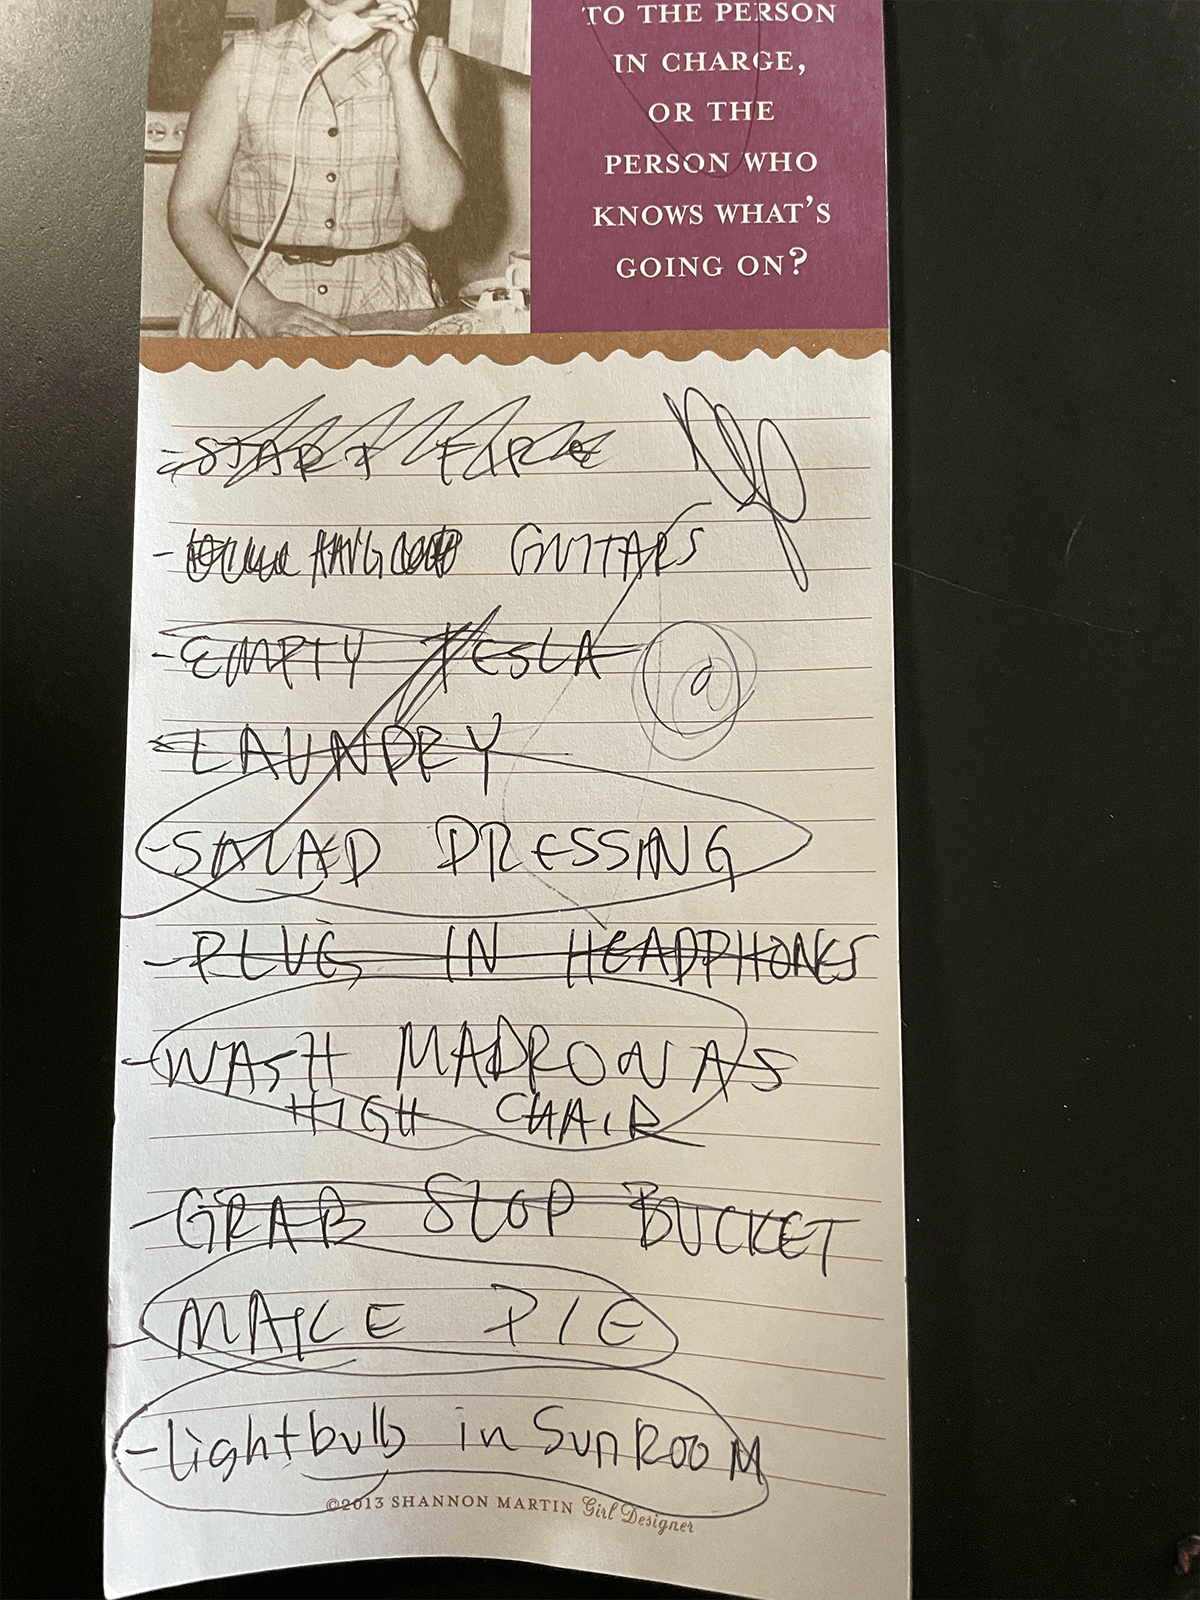 TO THE PERSON
IN CHARGE,
OR THE
PERSON WHO
KNOWS WHAT'S
GOING ON?
- START FIRE
- HANG GUITARS
- EMPTY TESLA
- LAUNDRY
- SALAD DRESSING
- PLUG IN HEADPHONES
- WASH MADRONAS
HIGH CHAIR
- GRAB SLOP BUCKET
- MAKE PIE
- lightbulb in SunROOM
©2013 SHANNON MARTIN Girl Designer